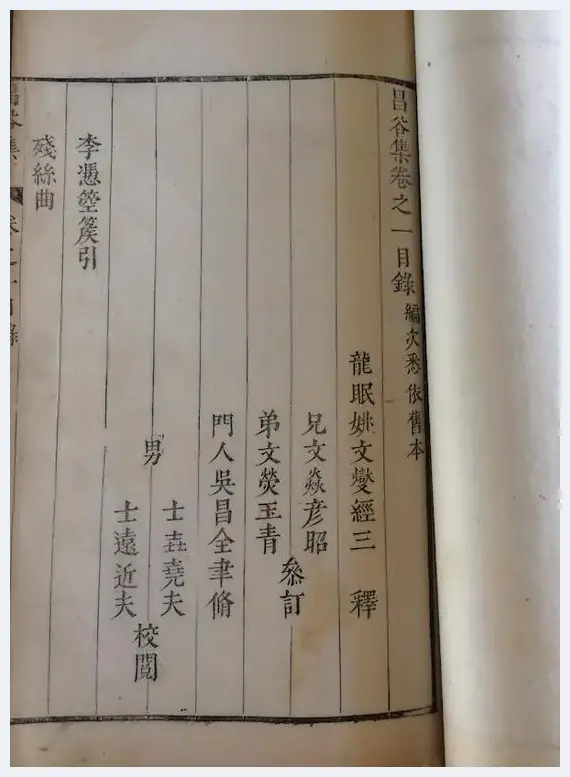 昌谷集卷之一目錄 編次悉依舊本
龍眠姚文燮經三 釋
兄文燚彥昭
弟文熒玉青
叅訂
門人吳昌全聿脩
男
士壵堯夫
士遠近夫
校閱
李憑箜篌引
殘絲曲
昌谷集 卷之一目錄